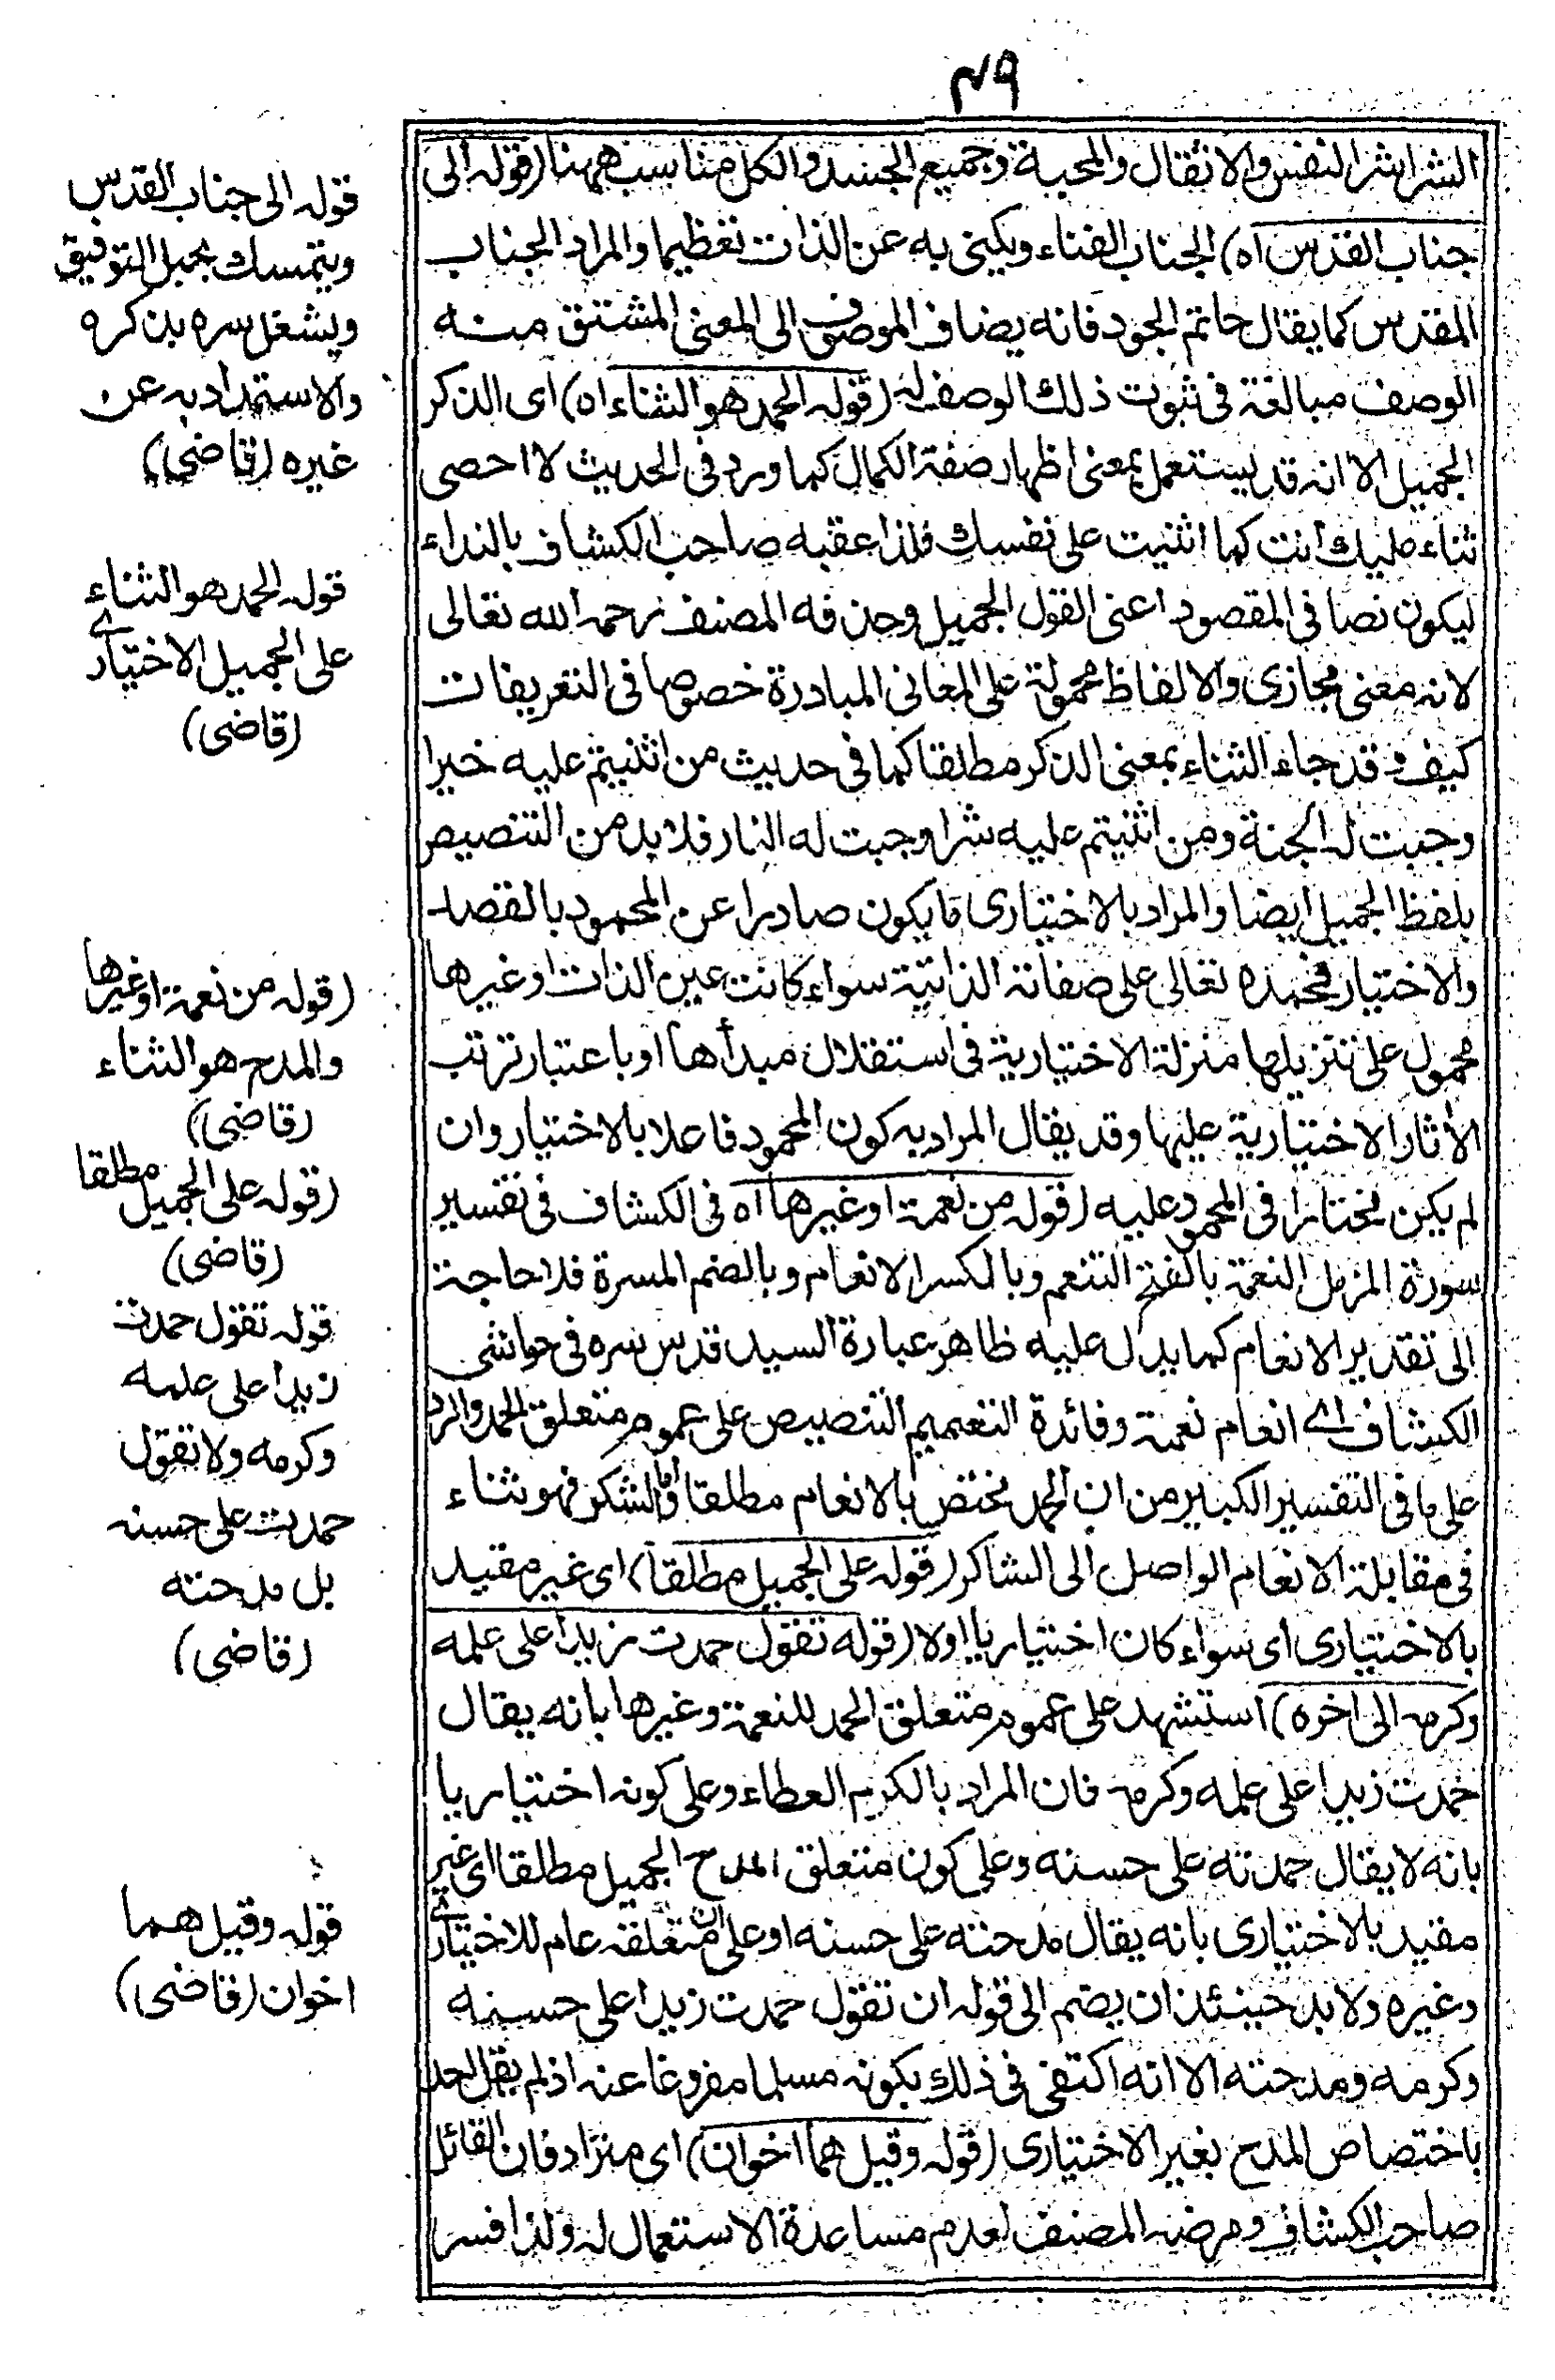 ٤٩
الشراشر النفس والاثقال والمحبة وجميع الجسد والكل مناسب ههنا (قوله الى
جناب القدس اه) الجناب الفناء ويكنى به عن الذات تعظيما والمراد الجناب
المقدس كما يقال حاتم الجود فانه يضاف الموصوف الى المعنى المشتق منه
الوصف مبالغة فى ثبوت ذلك الوصف له (قوله الحمد هو الثناء اه) اى الذكر
الجميل الا انه قد يستعمل بمعنى اظهار صفة الكمال كما ورد فى الحديث لا احصى
ثناء عليك انت كما اثنيت على نفسك فلذا عقبه صاحب الكشاف بالنداء
ليكون نصا فى المقصود اعنى القول الجميل وحذفه المصنف رحمه الله تعالى
لانه معنى مجازى والالفاظ محمولة على المعانى المبادرة خصوصا فى التعريفات
كيف وقد جاء الثناء بمعنى الذكر مطلقا كما فى حديث من اثنيتم عليه خيرا
وجبت له الجنة ومن اثنيتم عليه شرا وجبت له النار فلا بد من التنصيص
بلفظ الجميل ايضا والمراد بالاختيارى ما يكون صادرا عن المحمود بالقصد
والاختيار فحمده تعالى على صفاته الذاتية سواء كانت عين الذات او غيرها
محمول على تنزيلها منزلة الاختيارية فى استقلال مبدأها او باعتبار ترتب
الأثار الاختيارية عليها وقد يقال المراد به كون المحمود فاعلا بالاختيار وان
لم يكن مختارا فى المحمود عليه (قوله من نعمة او غيرها اه فى الكشاف فى تفسير
سورة المزمل النعمة بالفتح التنعم وبالكسر الانعام وبالضم المسرة فلا حاجة
الى تقدير الانعام كما يدل عليه ظاهر عبارة السيد قدس سره فى حواشى
الكشاف اے انعام نعمة وفائدة التعميم التنصيص على عموم متعلق الحمد والرد
على ما فى التفسير الكبير من ان الحمد مختص بالانعام مطلقا واما الشكر فهو ثناء
فى مقابلة الانعام الواصل الى الشاكر (قوله على الجميل مطلقا) اى غير مقيد
بالاختيارى اى سواء كان اختياريا اولا (قوله تقول حمدت زيدا على علمه
وكرمه الى اخره) استشهد على عموم متعلق الحمد للنعمة وغيرها بانه يقال
حمدت زيدا على علمه وكرمه فان المراد بالكرم العطاء وعلى كونه اختياريا
بانه لا يقال حمدته على حسنه وعلى كون متعلق المدح الجميل مطلقا اى غير
مقيد بالاختيارى بانه يقال مدحته على حسنه او على ان متعلقه عام للاختيارے
وغيره ولا بد حينئذ ان يضم الى قوله ان تقول حمدت زيدا على حسنه
وكرمه ومدحته الا انه اكتفى فى ذلك بكونه مسلما مفروغا عنه اذ لم يقل احد
باختصاص المدح بغير الاختيارى (قوله وقيل هما اخوان) اى مترادفان القائل
صاحب الكشاف ومرضه المصنف لعدم مساعدة الاستعمال له ولذا فسرا
قوله الى جناب القدس
ويتمسك بحبل التوفيق
ويشغل سره بذكره
والاستمداد به عن
غيره (قاضى)
قوله الحمد هو الثناء
على الجميل الاختيارے
(قاضى)
(قوله من نعمة او غيرها
والمدح هو الثناء
(قاضى)
(قوله على الجميل مطلقا
(قاضى)
قوله تقول حمدت
زيدا على علمه
وكرمه ولا تقول
حمدت على حسنه
بل مدحته
(قاضى)
قوله وقيل هما
اخوان (قاضى)